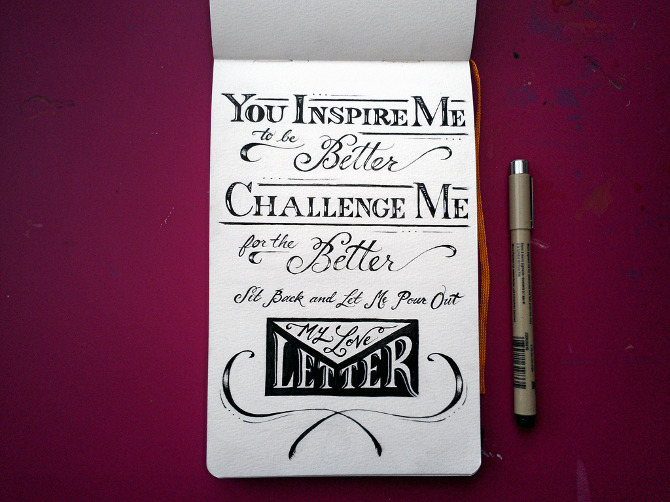 You Inspire Me
to be
Better
Challenge Me
for the
Better
Sit Back and Let Me Pour Out
My Love
Letter